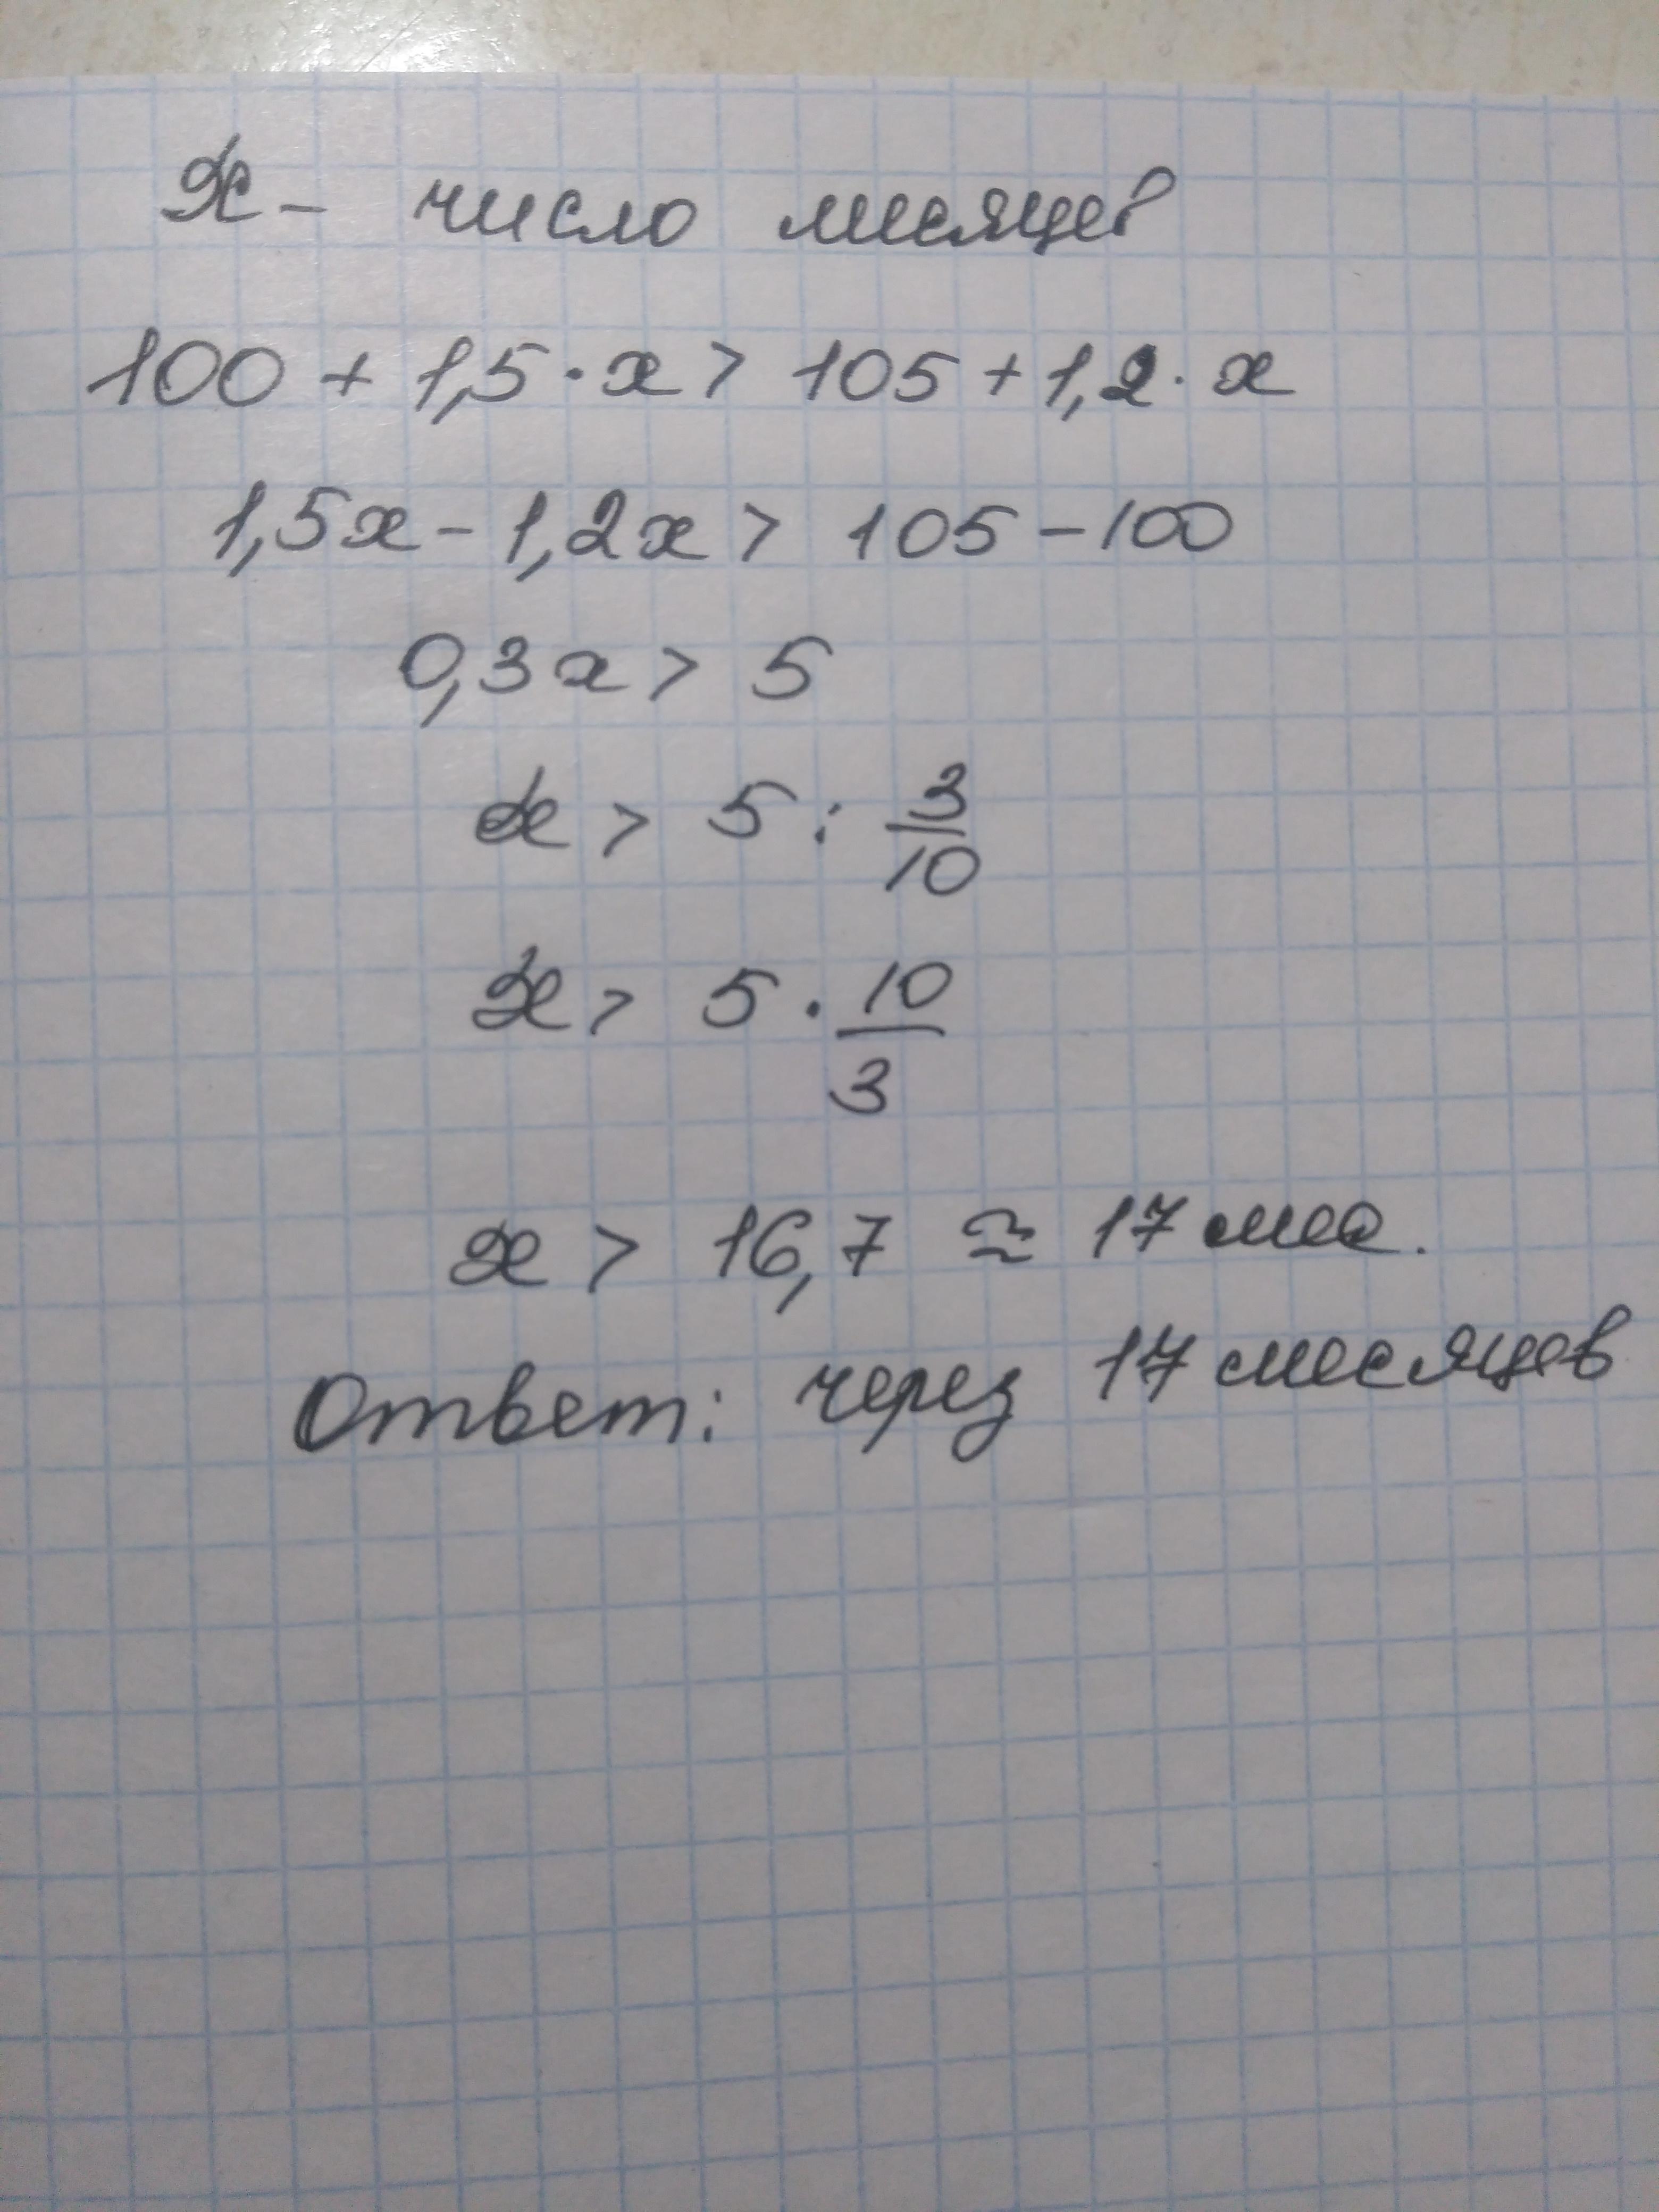 x - число месяцев
100 + 1,5 · x > 105 + 1,2 · x
1,5x - 1,2x > 105 - 100
0,3x > 5
x > 5 : 3/10
x > 5 · 10/3
x > 16,7 ≈ 17 мес.
Ответ: через 17 месяцев